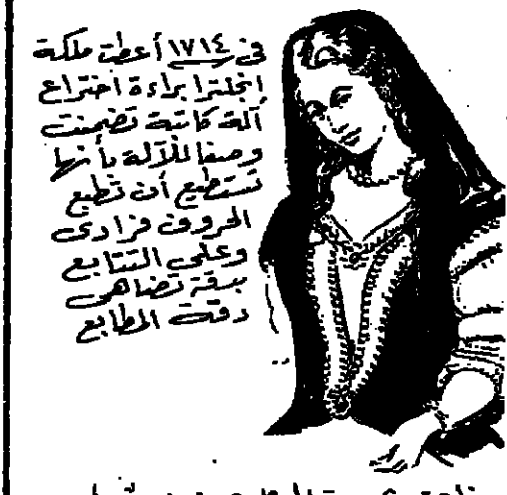 في ١٧١٤ أعطت ملكة
انجلترا براءة اختراع
آلة كاتبة تضمنت
وصفا للآلة بأنها
تستطيع أن تطبع
الحروف فرادى
وعلى التتابع
بدقة تضاهى
دقة المطابع